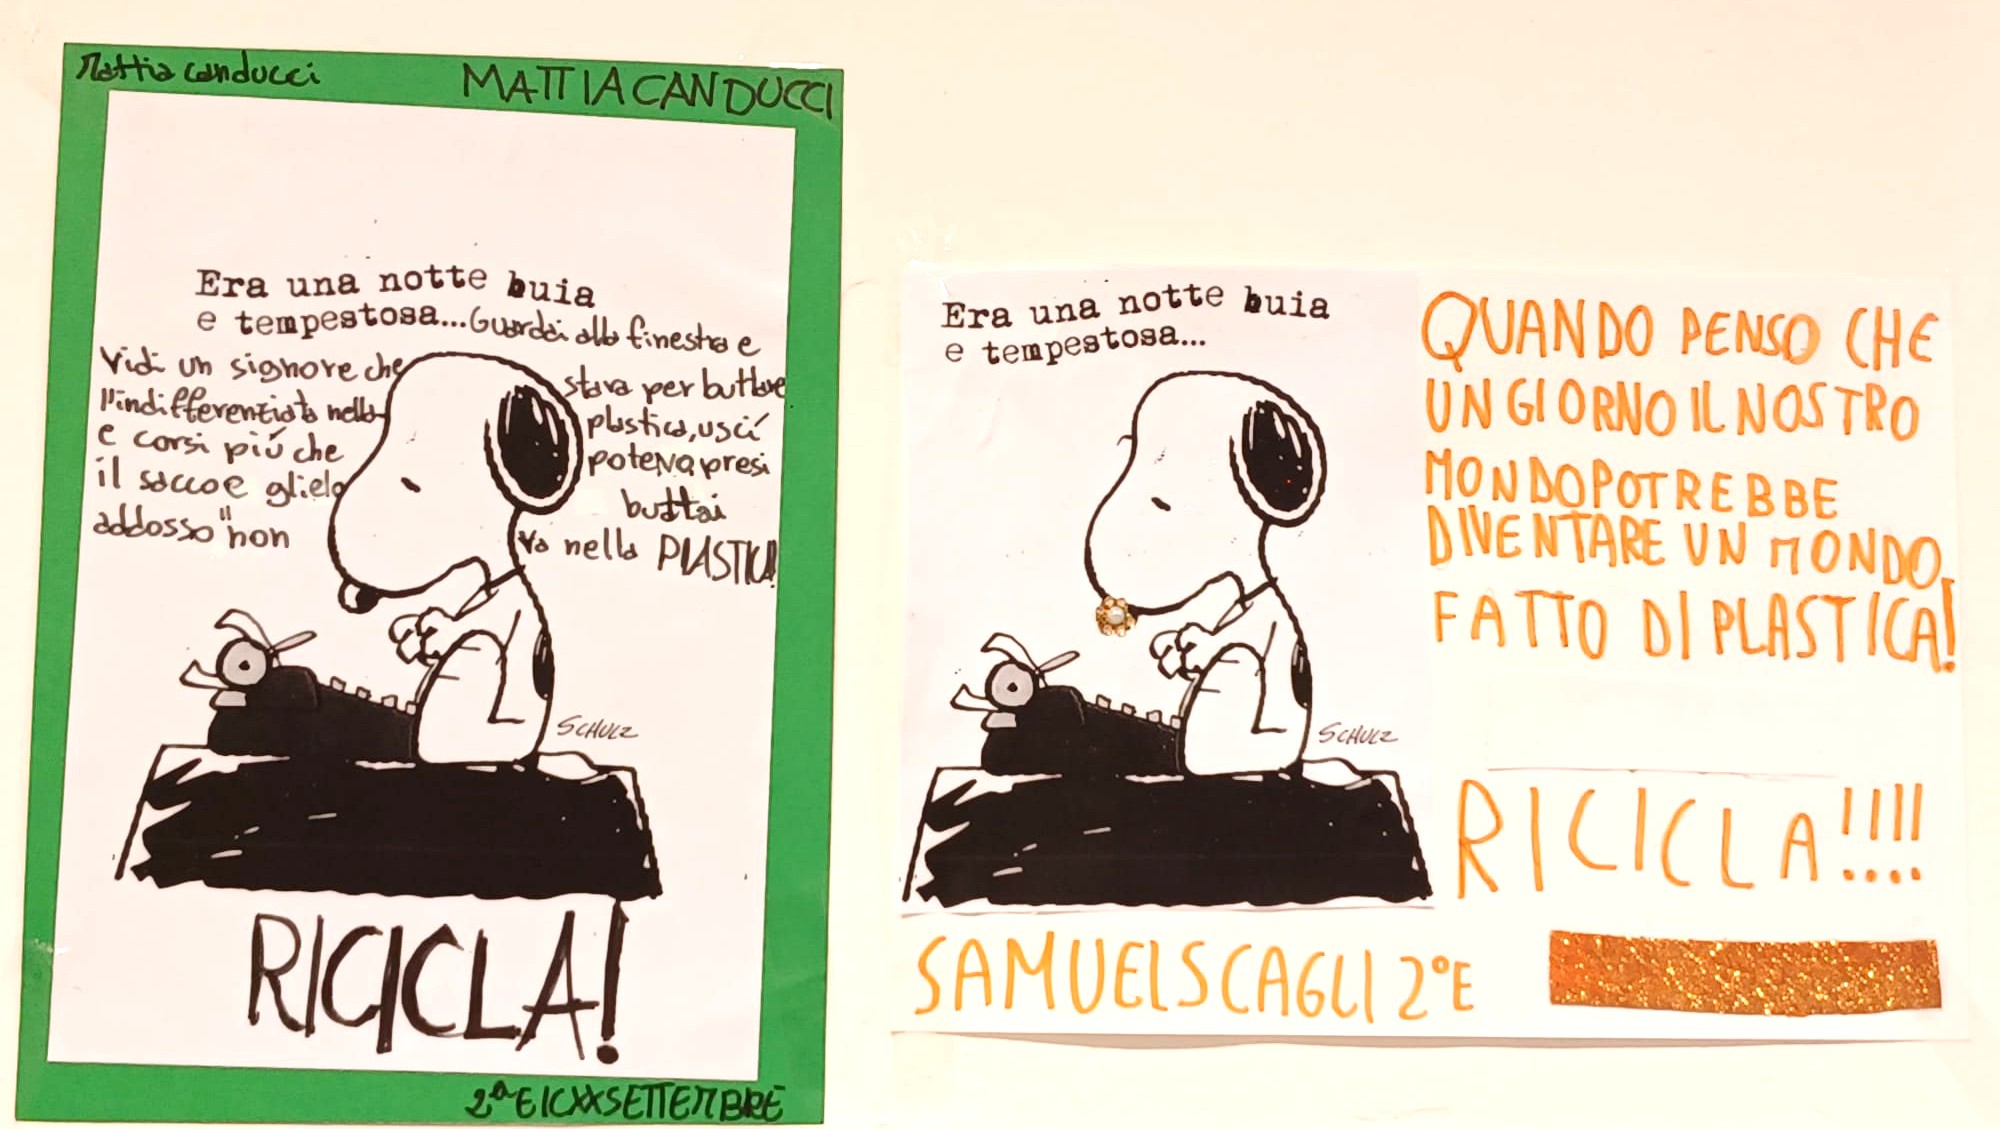 Mattia Canducci
MATTIA CANDUCCI
Era una notte buia
e tempestosa...Guardai alla finestra e
vidi un signore che stava per buttare
l'indifferenziata nella plastica, uscí
e corsi piú che potevo presi
il sacco e glielo buttai
addosso "non va nella PLASTICA!
SCHULZ
RICICLA!
2ªE ICXXSETTEMBRE
Era una notte buia
e tempestosa...
SCHULZ
QUANDO PENSO CHE
UN GIORNO IL NOSTRO
MONDO POTREBBE
DIVENTARE UN MONDO
FATTO DI PLASTICA!
RICICLA!!!!
SAMUEL SCAGLI 2°E